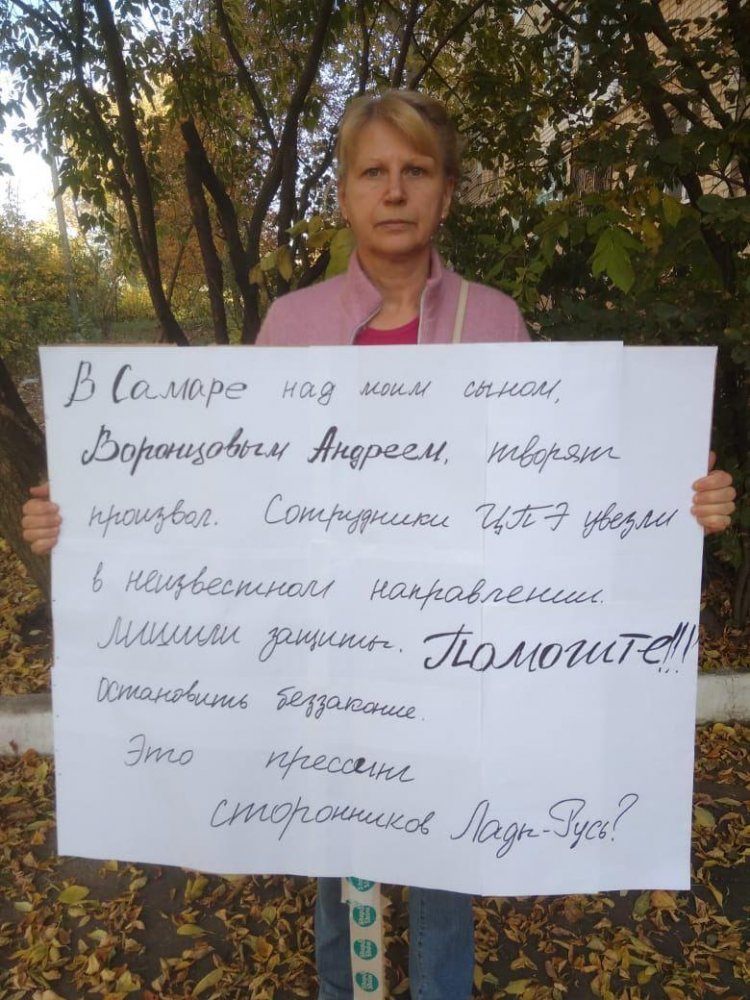 В Самаре над моим сыном,
Воронцовым Андреем, творят
произвол. Сотрудники ЦПЭ увезли
в неизвестном направлении.
Лишили защиты. Помогите!!!
Остановить беззаконие.
Это прессинг
сторонников Лады-Русь?